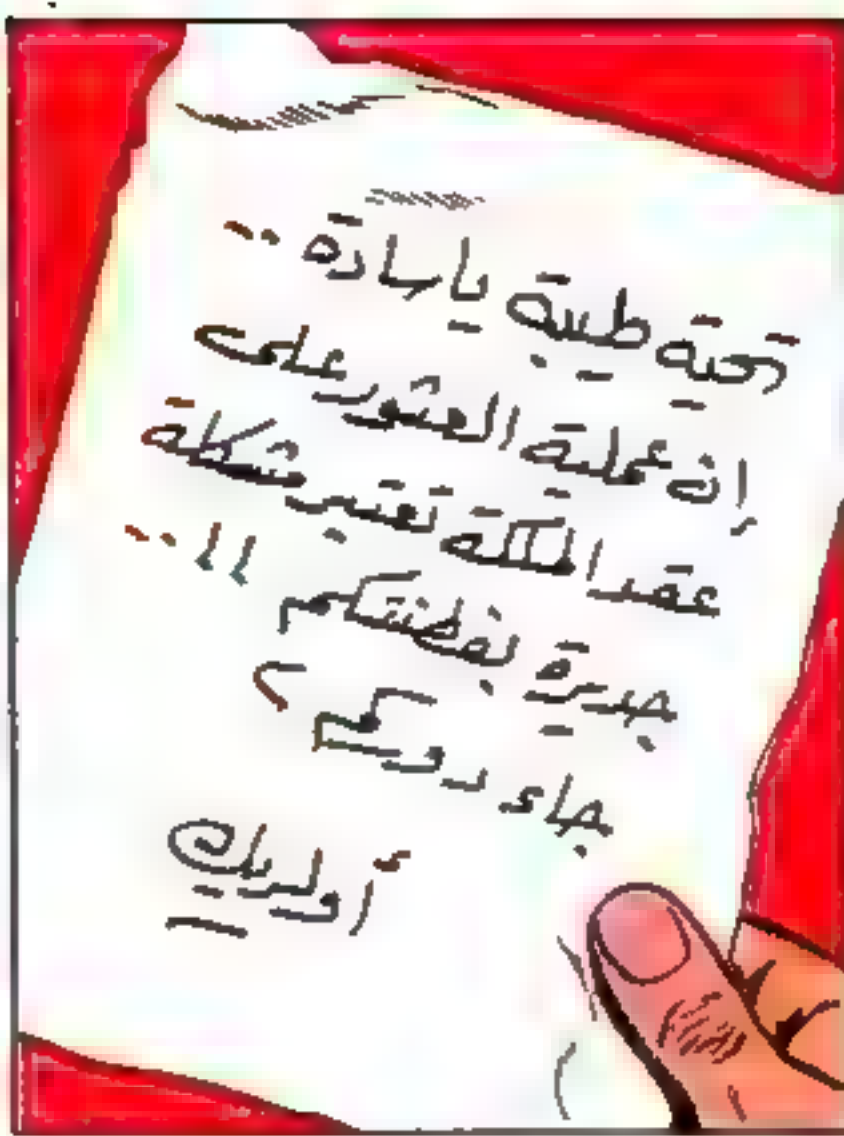 تحية طيبة ياسادة ..
إن عملية العثور على
عقد الملكة تعتبر مشكلة
جديرة بفطنتكم !! ..
جاء دوركم ؟
أولريك